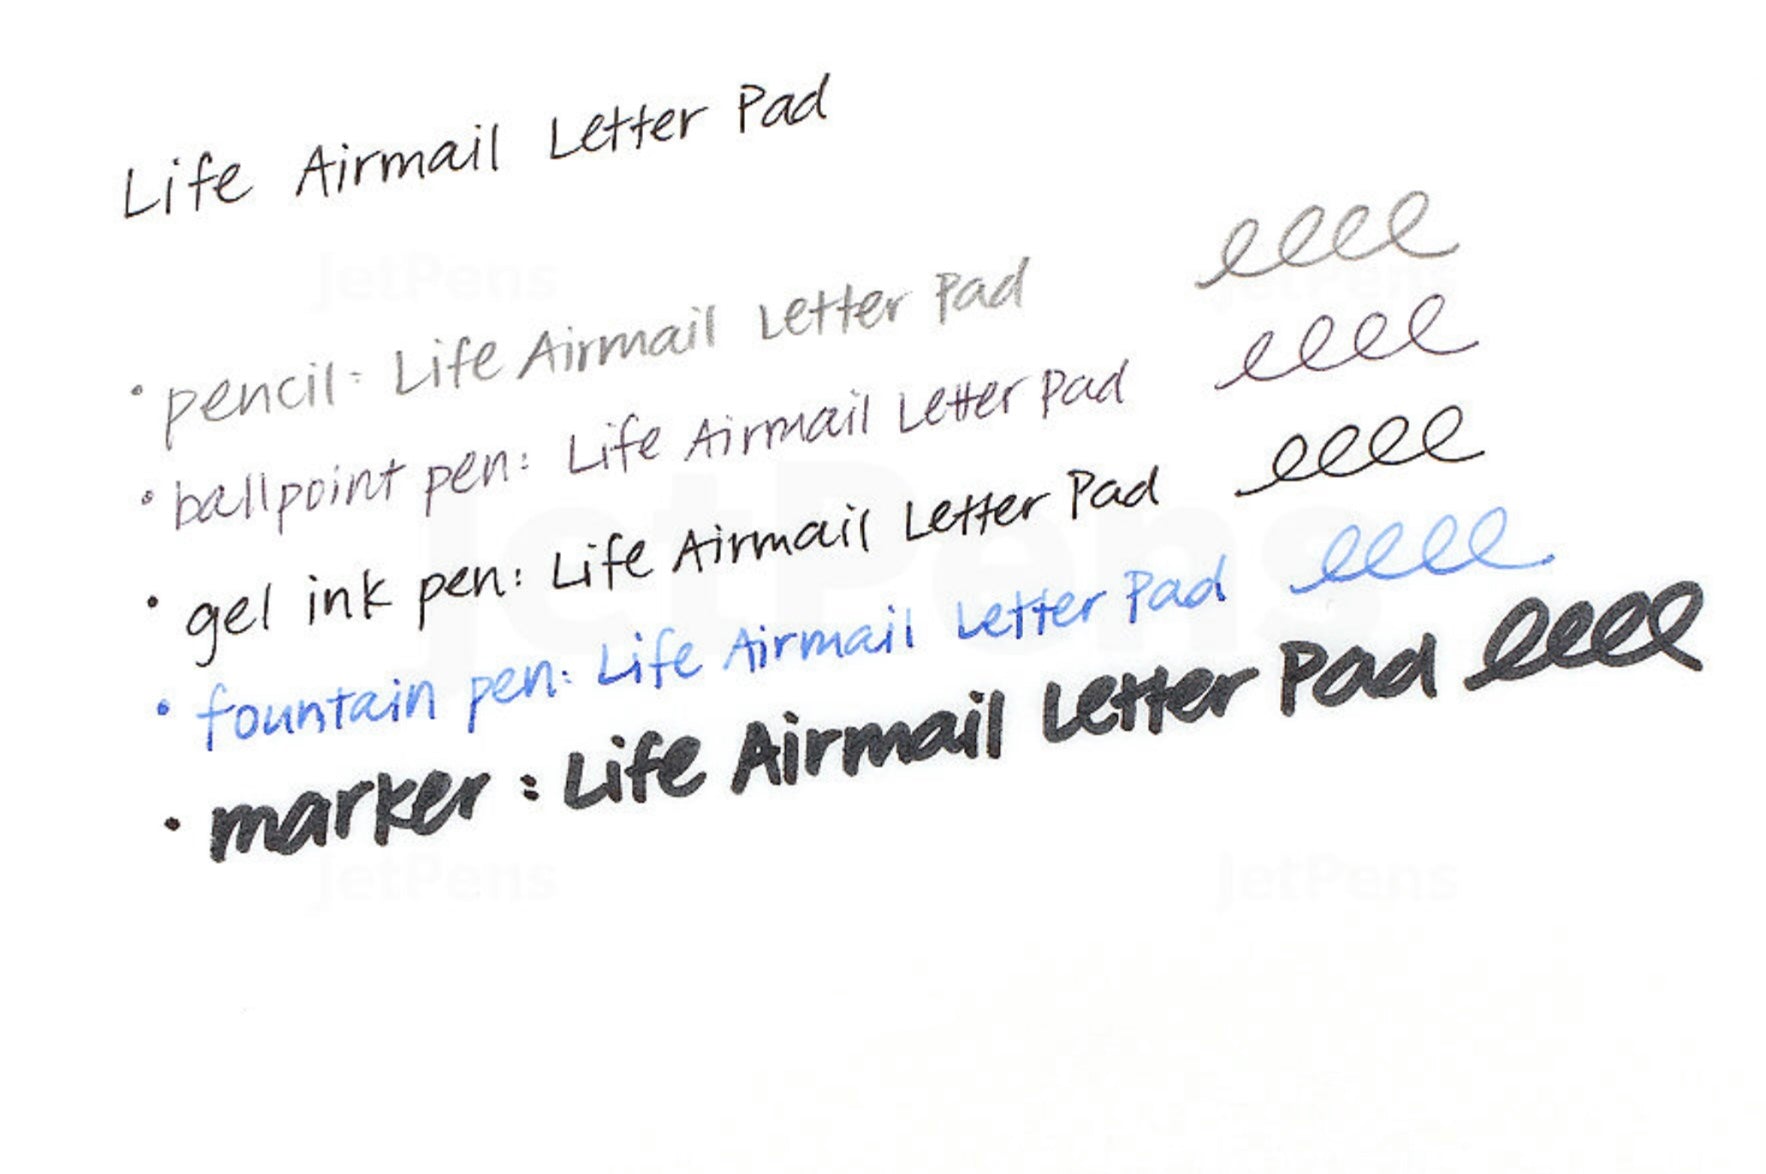 Life Airmail Letter Pad
• pencil: Life Airmail Letter Pad eeee
• ballpoint pen: Life Airmail Letter Pad eeee
• gel ink pen: Life Airmail Letter Pad eeee
• fountain pen: Life Airmail Letter Pad eeee
• marker: Life Airmail Letter Pad eeee
JetPens
JetPens
JetPens
JetPens
JetPens